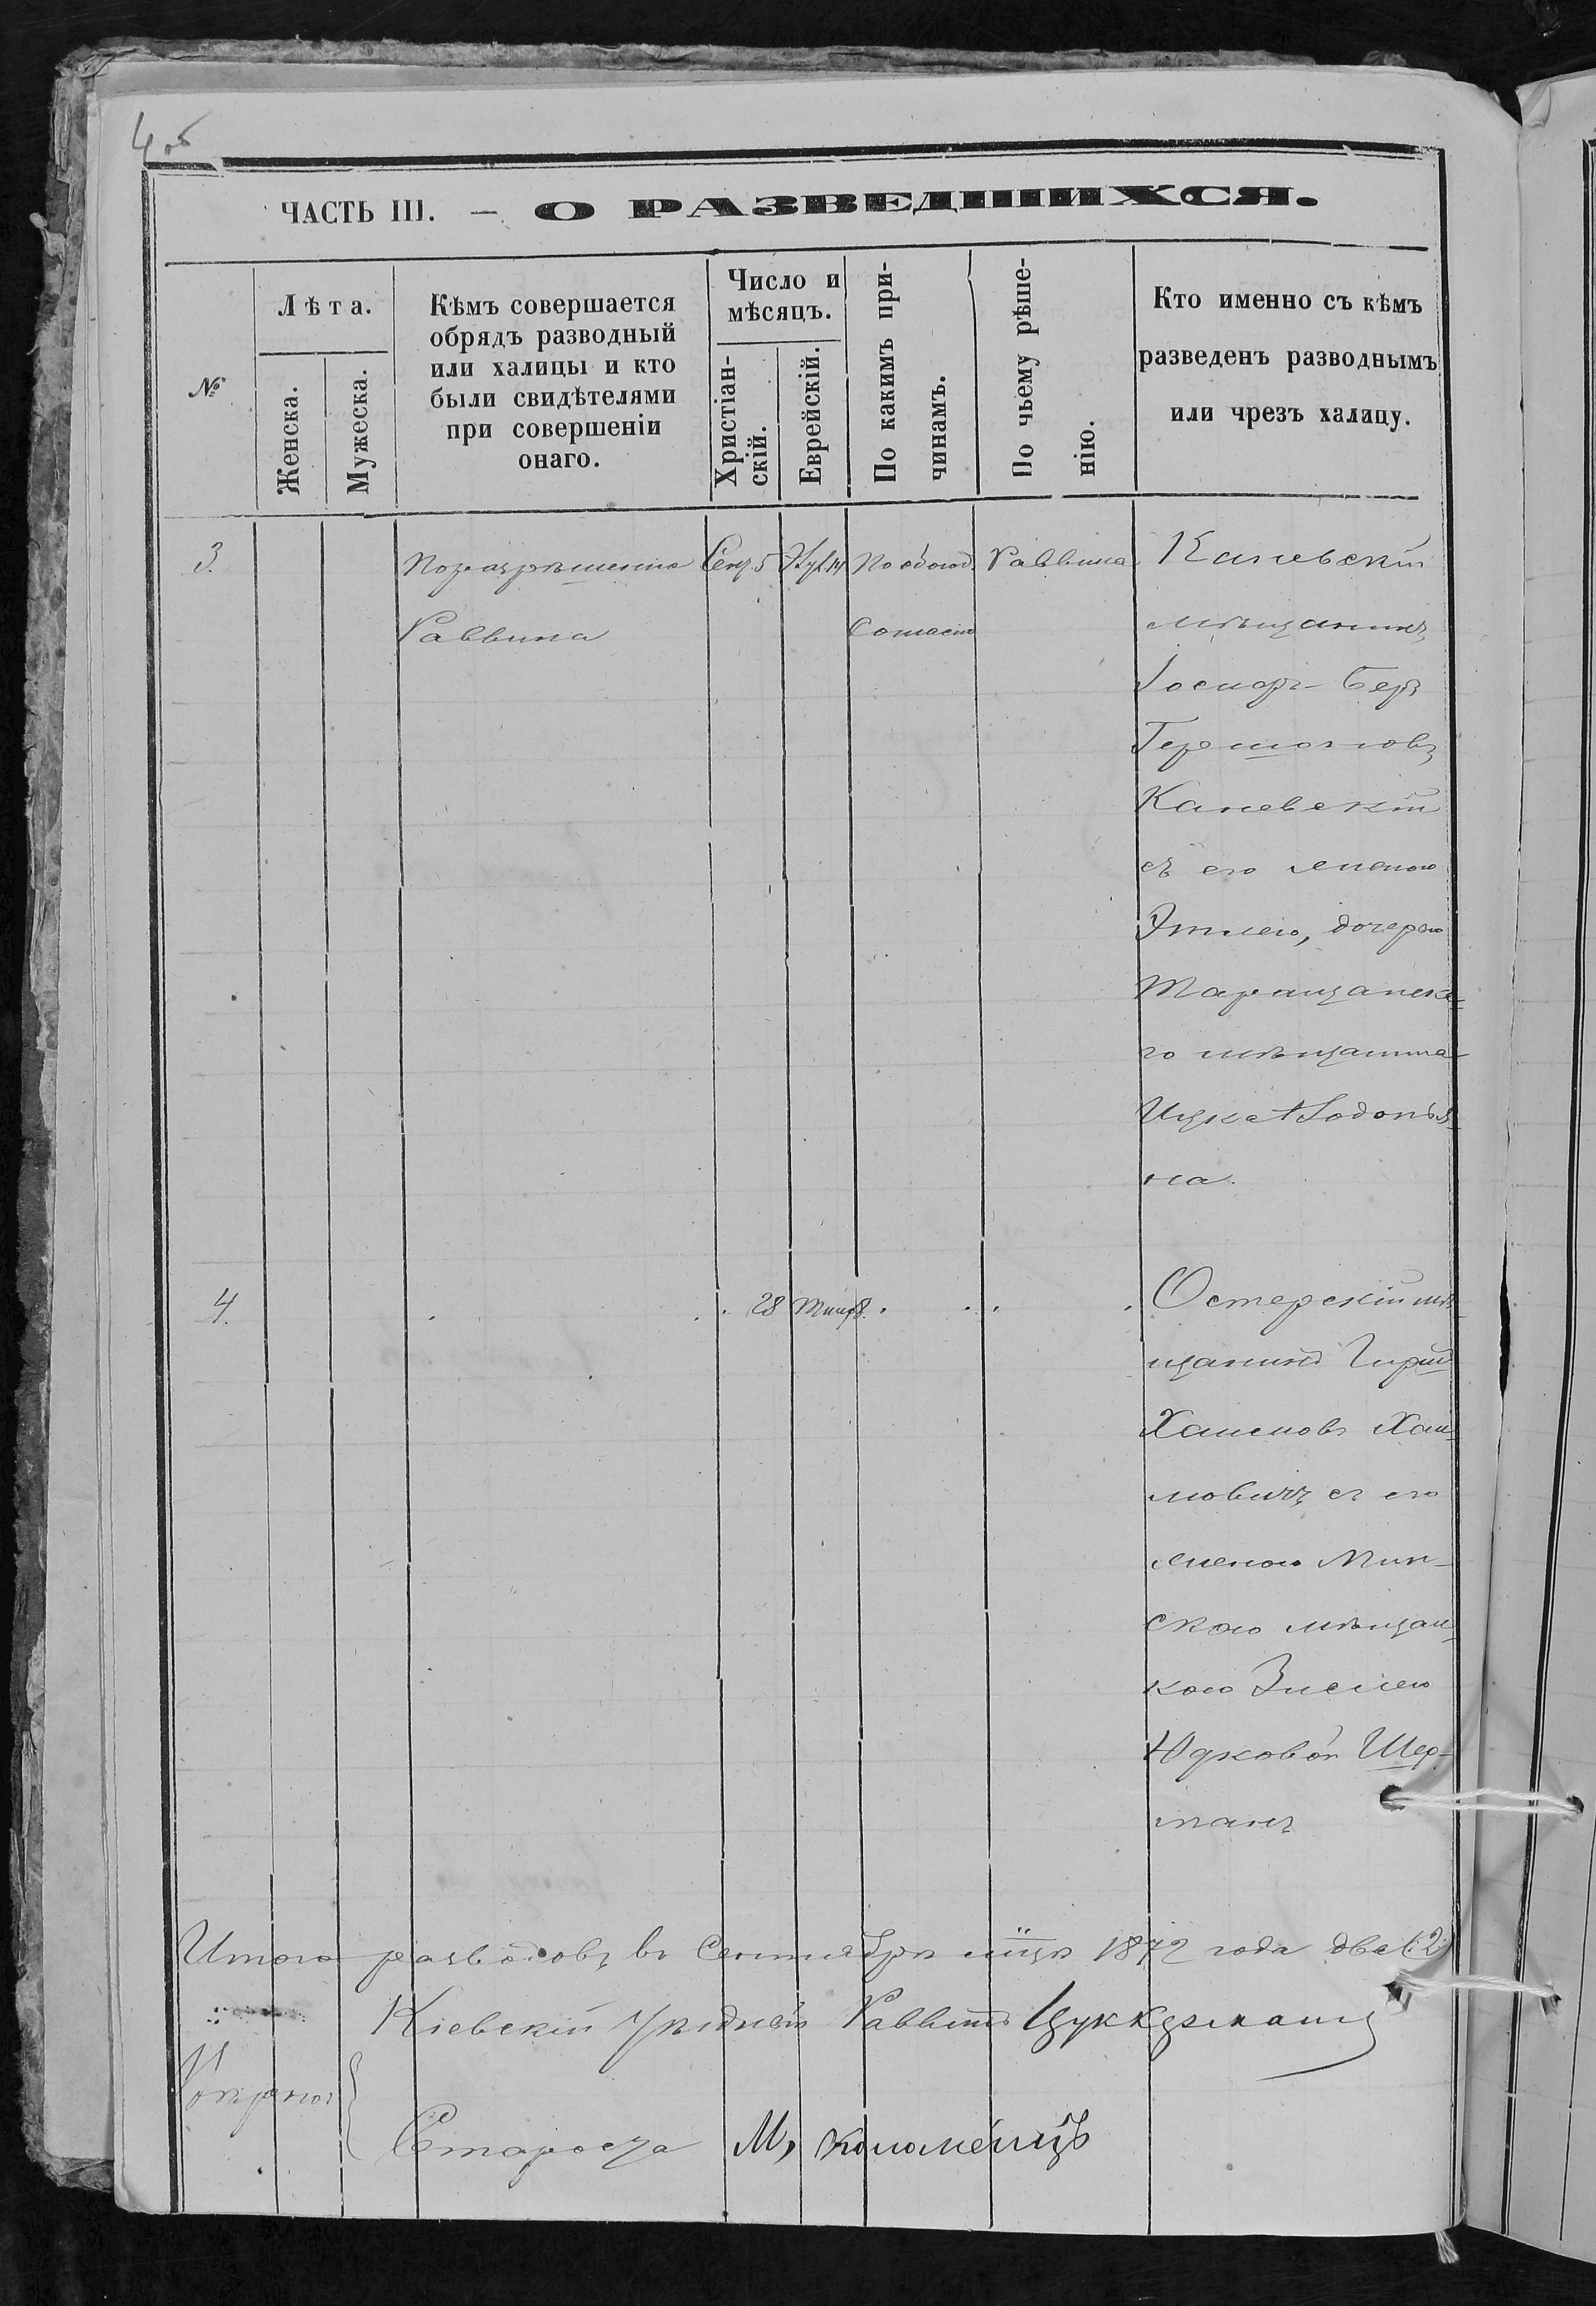 4 об
ЧАСТЬ III. — О РАЗВЕДШИХСЯ.
№
Лѣта.
Женска.
Мужеска.
Кѣмъ совершается
обрядъ разводный
или халицы и кто
были свидѣтелями
при совершеніи
онаго.
Число и
мѣсяцъ.
Христіан-
скій.
Еврейскій.
По какимъ при-
чинамъ.
По чьему рѣше-
нію.
Кто именно съ кѣмъ
разведенъ разводнымъ
или чрезъ халицу.
3. По разрѣшенію Сен. 5 По обоюд. Раввина Каневскій
Раввина Согласію мѣщанинъ
Іосифъ-Беръ
Гершоновъ
Каневскій
съ его женою
Этлею, дочерью
Таращанска-
го мѣщанина
Ицка Водопья-
на.
4. 28 Тиш. 8. Остерскій мѣ-
щанинъ Гирш
Хаимовъ Хаи-
мовичъ съ его
женою Мин-
скою мѣщан-
кою Зислею
Юдковой Шер-
манъ
Итого разводовъ въ Сентябрѣ мцѣ 1872 года два (2)
Кіевскій Уѣздный Раввинъ Цуккерманъ
Староста М. Коломѣецъ